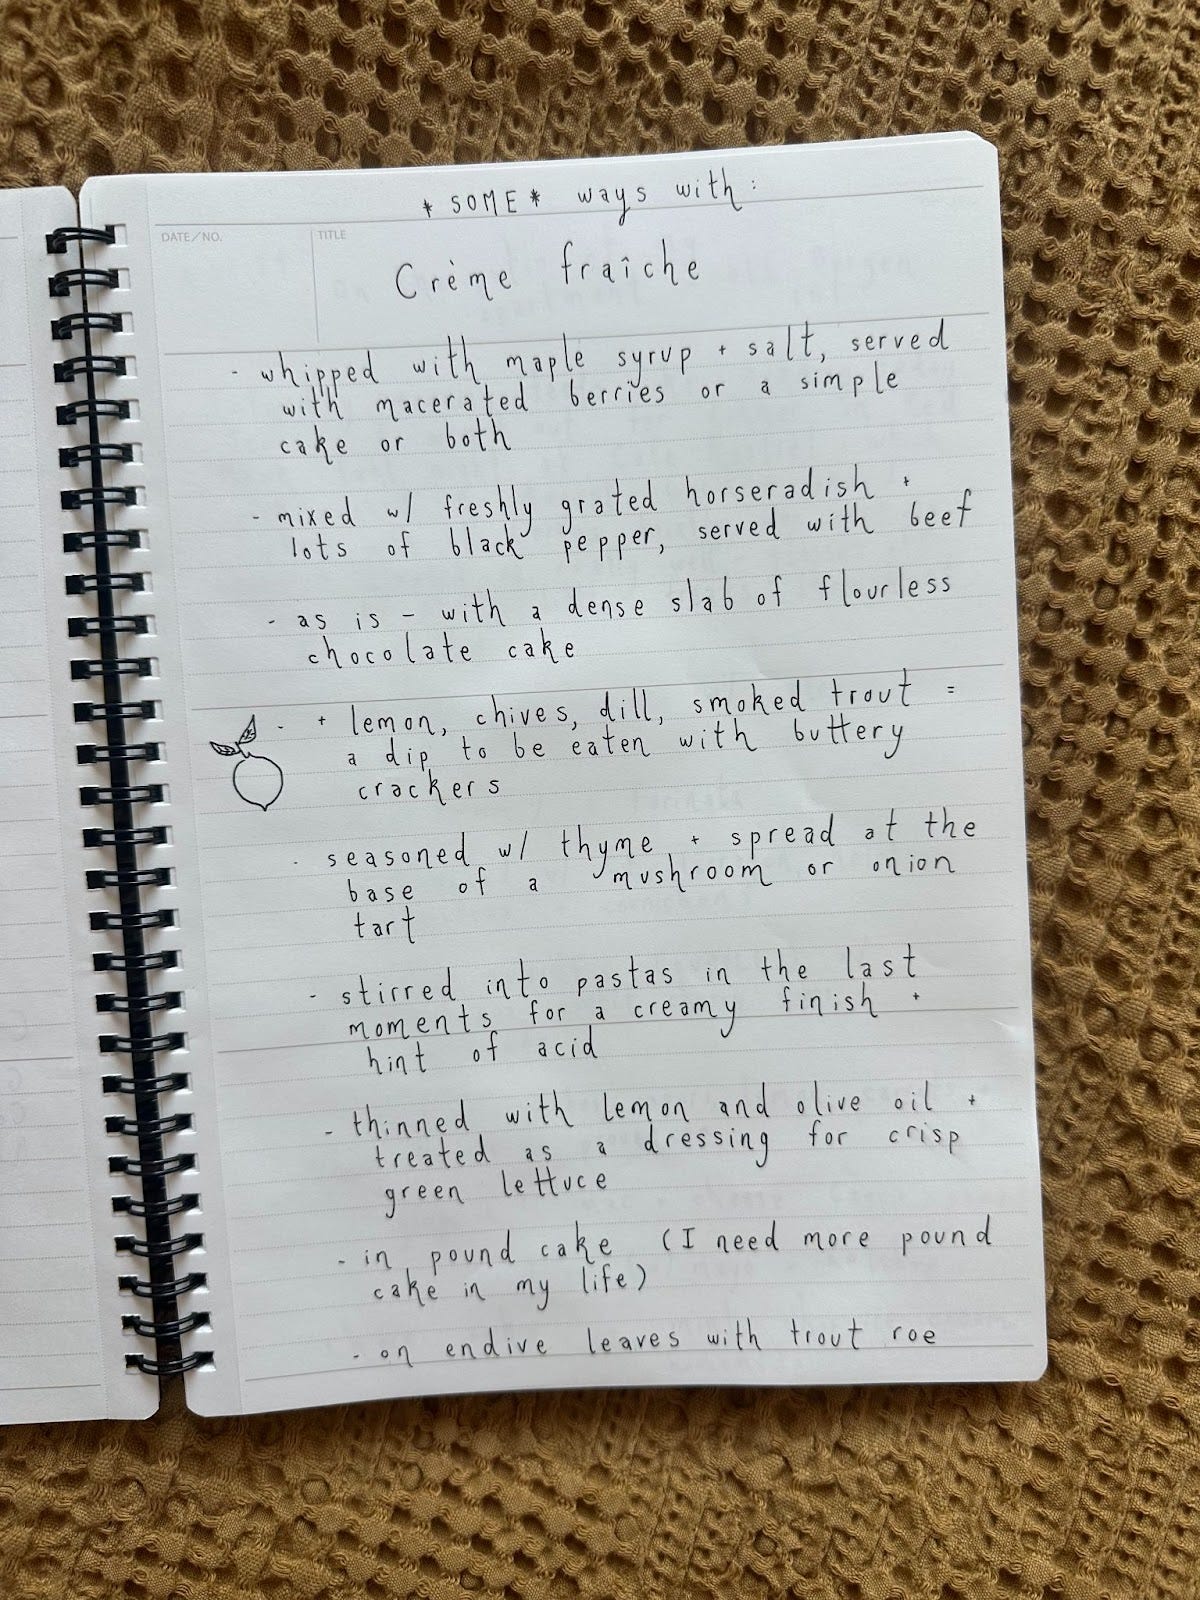 * SOME * ways with:
DATE/NO.
TITLE
Crème fraîche
- whipped with maple syrup + salt, served
with macerated berries or a simple
cake or both
- mixed w/ freshly grated horseradish +
lots of black pepper, served with beef
- as is - with a dense slab of flourless
chocolate cake
- + lemon, chives, dill, smoked trout =
a dip to be eaten with buttery
crackers
- seasoned w/ thyme + spread at the
base of a mushroom or onion
tart
- stirred into pastas in the last
moments for a creamy finish +
hint of acid
- thinned with lemon and olive oil +
treated as a dressing for crisp
green lettuce
- in pound cake (I need more pound
cake in my life)
- on endive leaves with trout roe